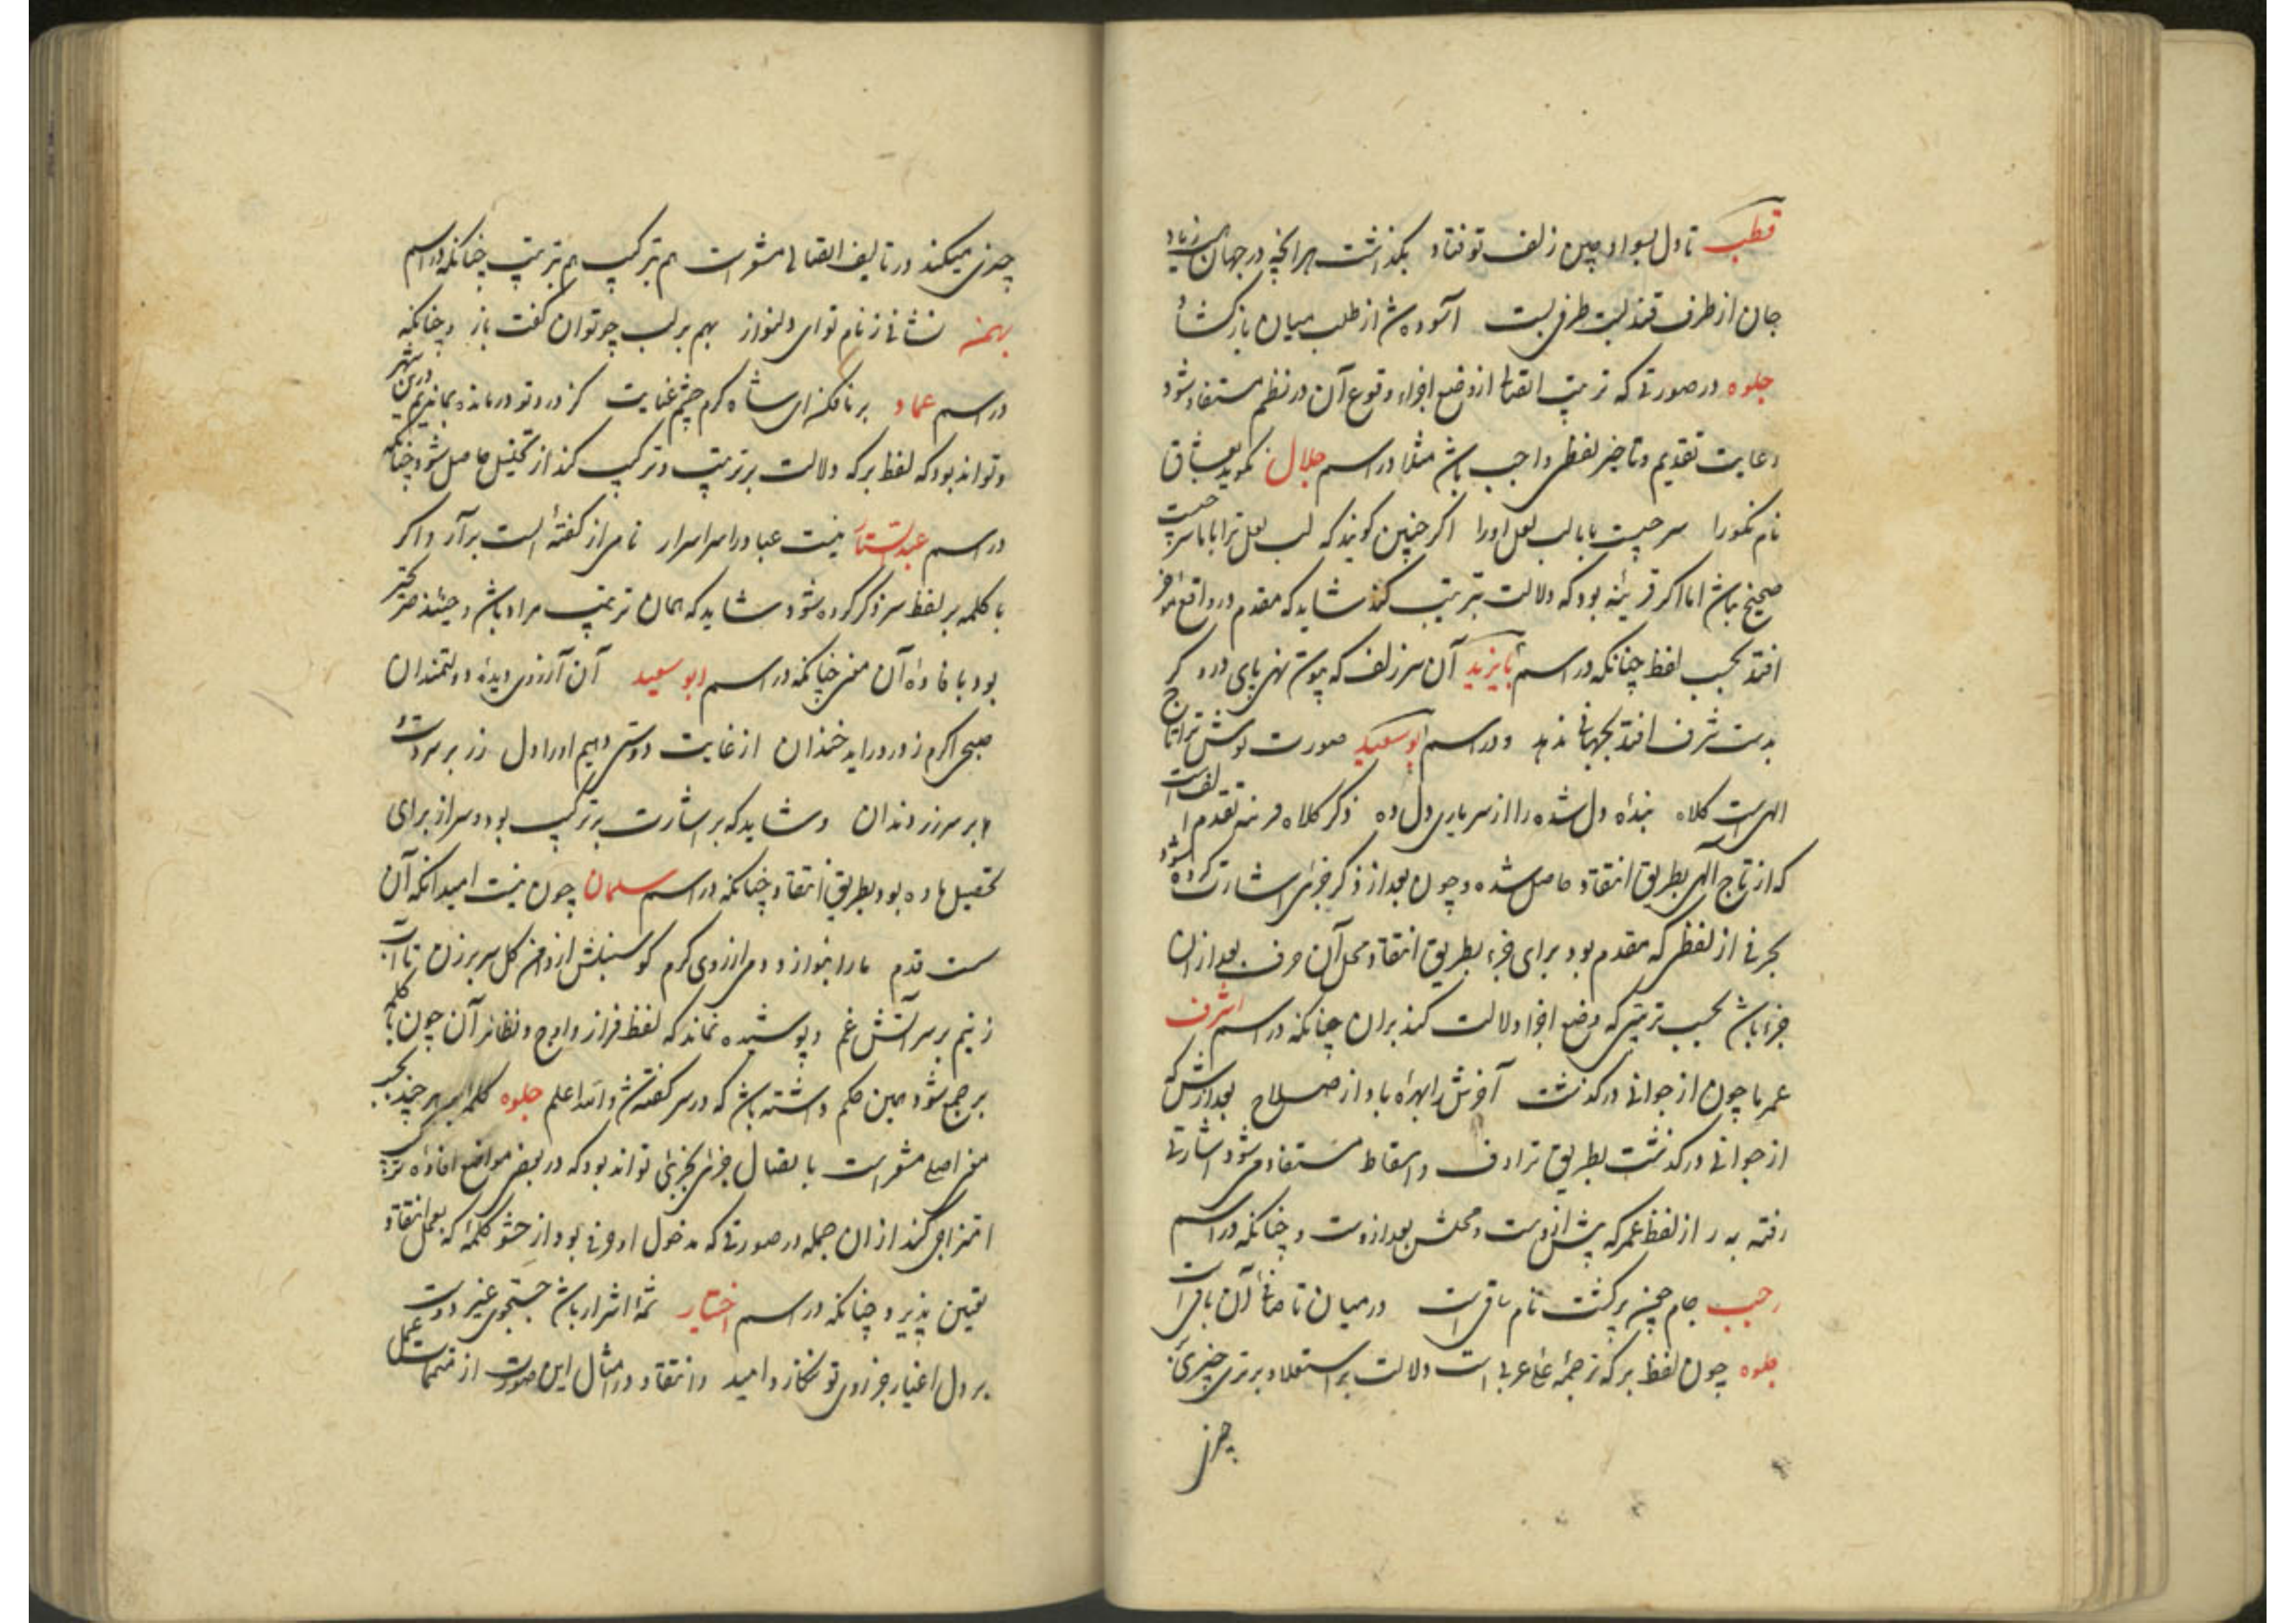 قطب تا دل بسواد چین زلف تو فتاد بگذاشت هر آنچه در جهان
جان از طرف قند لبت طرفی بست آسوده شد از طلب میان باز کشاد
جلوه در صورتی که ترتیب اتصالی از وضع اجزاء و وقوع آن در نظم مستفاد شود
رعایت تقدیم و تاخیر لفظی واجب باشد مثلا در اسم جلال نگوید بعشاق
نام نکو را سر حیرت با با لب لعل او را اگر چنین گویند که لب لعل ترا با با سر
صحیح نباشد اما اگر قرینه بود که دلالت بترتیب کند شاید که مقدم در واقع مؤخر
افتد بحسب لفظ چنانکه در اسم بایزید آن سر زلف که پیوسته نهی پای درو گر
بدست شرف افتد بجهانی ندهد و در اسم ابو سعید صورت نوش ترا تاج
الهی است کلاه بنده دل شده را از سر یاری دل ده ذکر کلاه قرینه تقدم الف است
که از تاج الهی بطریق انتقاد حاصل شده و چون بعد از ذکر جزئی اشارت کرده شود
بحرفی از لفظی که مقدم بود برای جزء بطریق انتقاد و محل آن حرف بعد از آن
جزء باشد بحسب ترتیبی که وضع اجزا دلالت کند بران چنانکه در اسم اشرف
عمر ما چون از جوانی در گذشت آخرش را بهره باد از صلاح بعد از شی که
از جوانی در گذشت بطریق ترادف و اسقاط مستفاد می شود اشارتی
رفته به ر از لفظ عمر که پیش ازوست و محلش بعد ازوست و چنانکه در اسم
رجب جام جم چون برگشت نام باقی است در میان تا صاف آن باقی است
جلوه چون لفظ بر که ترجمه علی عربی است دلالت بر استعلا و برتری چیزی بر
چیزی
چیزی میکند در تالیف اتصالی مشعر است هم بترکیب هم بترتیب چنانکه در اسم
بهمن نشانی ز نام تو ای دلنواز بهم بر لب چو توان گفت باز و چنانکه
در اسم عماد بر ما فکن ای شاه کرم چشم عنایت کز درد تو درمانده بماندیم درین شهر
و تواند بود که لفظ بر که دلالت بر ترتیب و ترکیب کند از تحلیل حاصل شود چنانکه
در اسم عبدالستار نیست عبا در اسرار نامی از گفته الست برآر و اگر
با کلمه بر لفظ سر ذکر کرده شود شاید که همان ترتیب مراد باشد و حینئذ
بود با فاده آن معنی چنانکه در اسم ابو سعید آن آرزوی دیده دولتمندان
صبحی اگرم ز در در آید خندان از غایت دوستی دهیم او را دل زر بر سر دست
و بر سر زر دندان و شاید که بر اشارت بترکیب بود و سر از برای
تحصیل ماده بود بطریق انتقاد چنانکه در اسم سلمان چون نیست امید آنکه آن
سست قدم ما را بنوازد دمی از روی کرم گو سنبلش از دامن گل سر بر زن تا آب
زنیم بر سر آتش غم و پوشیده نماند که لفظ فراز و اوج و نظائر آن چون با کلمه
بر جمع شود همین حکم داشته باشد که در سر گفته شد و الله اعلم جلوه کلمه بر هر چند بحسب
معنی اصلی مشعر است با تصال جزئی بجزئی تواند بود که در بعضی مواضع افاده ترکیب
امتزاجی کند از ان جمله در صورتی که مدخول او حرفی بود از حشو کلمه که بعمل انتقاد
تعیین پذیرد چنانکه در اسم اختیار شمه اشرار باشد جستجوی غیر دوست
بر دل اغیار جز روی تو نگذارد امید و انتقاد در امثال این صورت از متممات عمل